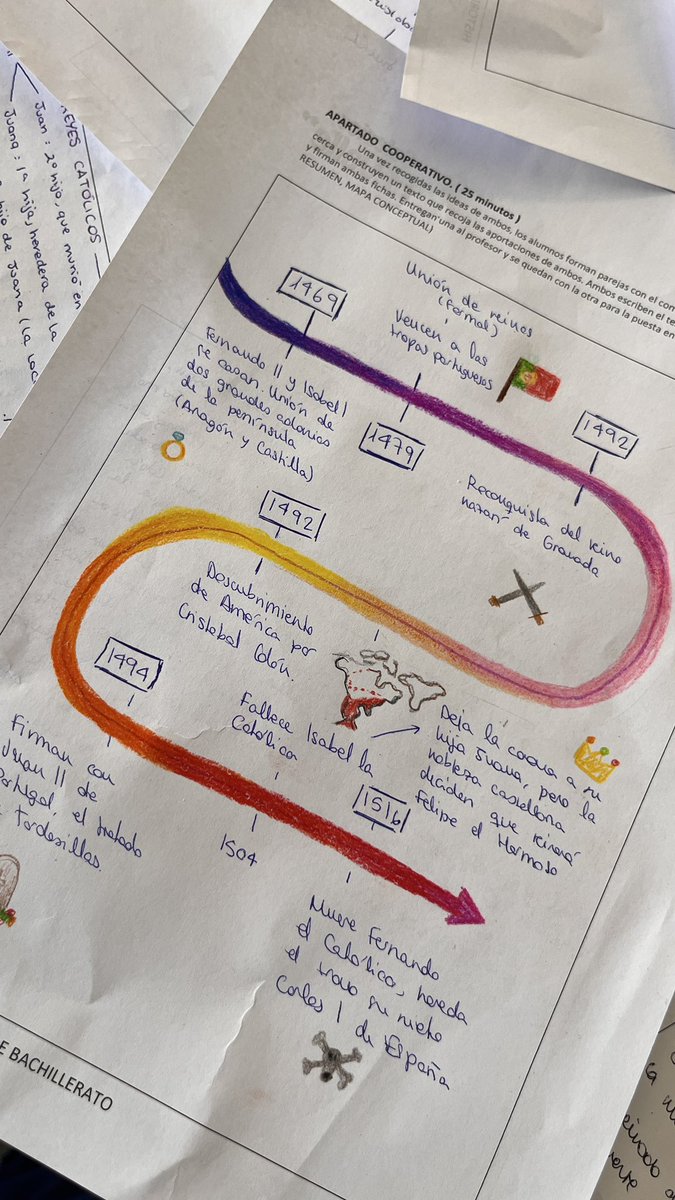 REYES CATÓLICOS
Juan: 2º hijo, que murió en
Juana: 1ª hija, heredera de la
hijo de Juana (La loc
APARTADO COOPERATIVO. ( 25 minutos )
Una vez recogidas las ideas de ambos, los alumnos forman parejas con el com
cerca y construyen un texto que recoja las aportaciones de ambos. Ambos escriben el te
y firman ambas fichas. Entregan una al profesor y se quedan con la otra para la puesta en
RESUMEN, MAPA CONCEPTUAL)
1469
Fernando II y Isabel I
se casan. Unión de
dos grandes colonias
de la península
(Aragón y Castilla)
Unión de reinos
(formal)
Vencen a las
tropas portuguesas
1479
1492
Reconquista del reino
nazarí de Granada
1492
Descubrimiento
de América por
Cristobal Colón.
1494
Firman con
Juan II de
Portugal, el tratado
Tordesillas.
Fallece Isabel la
Católica
1504
Deja la corona a su
hija Juana, pero la
nobleza castellana
deciden que reinará
Felipe el Hermoso
1516
Muere Fernando
el Católico, hereda
el trono su nieto
Carlos I de España
E BACHILLERATO